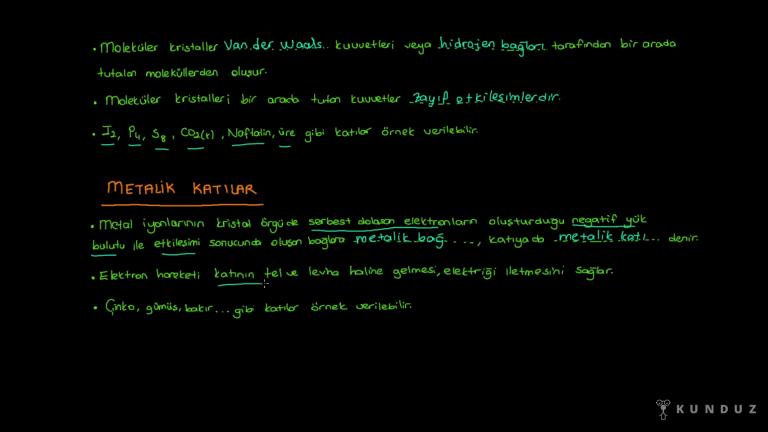 • Moleküler kristaller Van der Waals.. kuvvetleri veya hidrojen bağları tarafından bir arada
tutulan moleküllerden oluşur.
• Moleküler kristalleri bir arada tutan kuvvetler zayıf etkileşimlerdir.
• I2, P4, S8, CO2(k), Naftalin, üre gibi katılar örnek verilebilir.
METALİK KATILAR
• Metal iyonlarının kristal örgüde serbest dolaşan elektronların oluşturduğu negatif yük
bulutu ile etkileşimi sonucunda oluşan bağlara metalik bağ...., katıyada metalik katı... denir.
• Elektron hareketi katının tel ve levha haline gelmesi, elektriği iletmesini sağlar.
• Çinko, gümüş, bakır... gibi katılar örnek verilebilir.
KUNDUZ